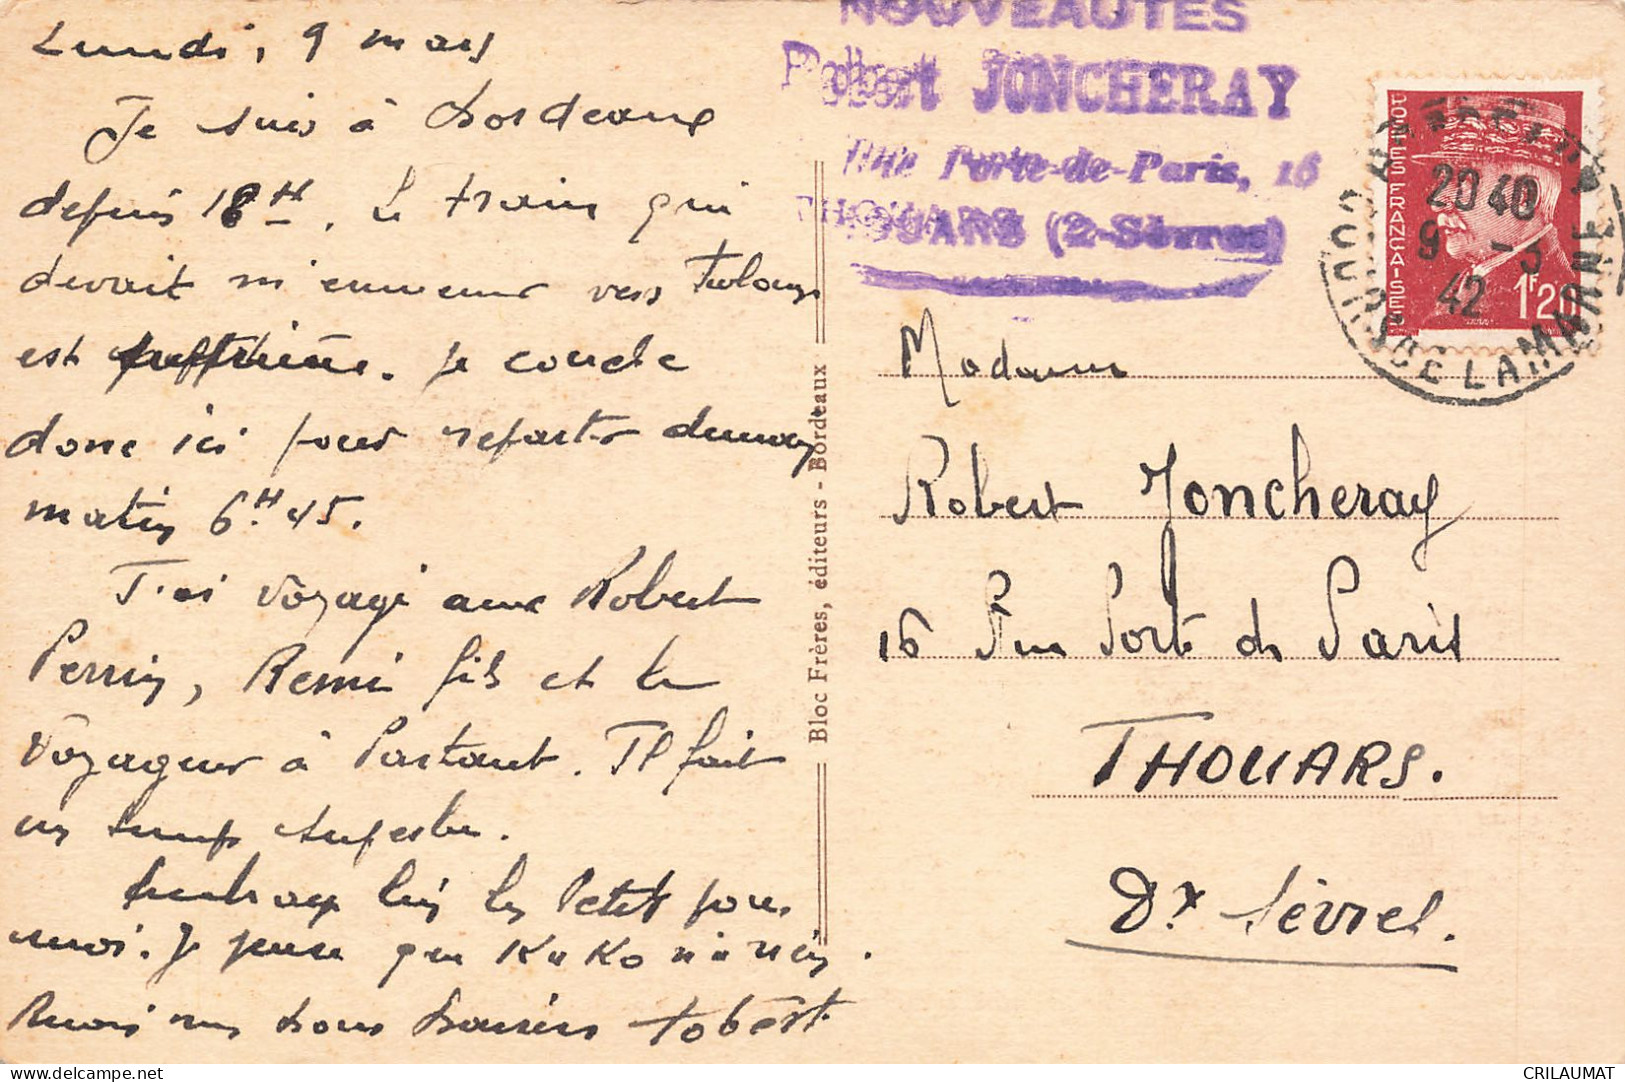 Lundi, 9 mars
Je suis à Bordeaux
depuis 18H. Le train qui
devait m'emmener vers Toulouse
est supprimé. Je couche
donc ici pour repartir demain
matin 6H45.
J'ai voyagé avec Robert
Perrin, Remi fils et le
voyageur à Partant. Il fait
un temps superbe.
Embrasse bien les Petits pour
moi. Je pense que Koko
bons baisers
NOUVEAUTES
Robert JONCHERAY
Rue Porte-de-Paris, 16
THOUARS (2-Sèvres)
POSTES FRANÇAISES
1F20
20 40
9 -3
42
Bloc Frères, éditeurs - Bordeaux
Madame
Robert Joncheray
16 Rue Porte de Paris
THOUARS.
Dx Sèvres.
CRILAUMAT